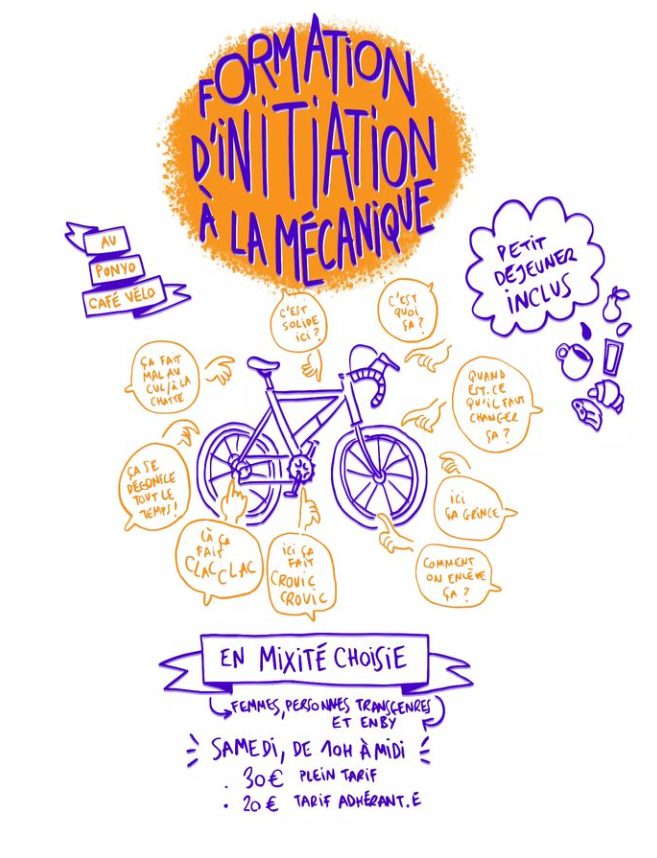 FORMATION
D'INITIATION
À LA MÉCANIQUE
AU
PONYO
CAFÉ VÉLO
PETIT
DEJEUNER
INCLUS
C'EST
SOLIDE
ICI ?
C'EST
QUOI
ÇA ?
ÇA FAIT
MAL AU
CUL/À LA
CHATTE
QUAND
EST-CE
QU'IL FAUT
CHANGER
ÇA ?
ÇA SE
DÉGONFLE
TOUT LE
TEMPS !
ICI
ÇA GRINCE
LÀ ÇA
FAIT
CLAC CLAC
ICI ÇA
FAIT
CROVIC
CROVIC
COMMENT
ON ENLÈVE
ÇA ?
EN MIXITÉ CHOISIE
FEMMES, PERSONNES TRANSGENRES
ET ENBY
SAMEDI, DE 10H À MIDI
. 30€ PLEIN TARIF
• 20€ TARIF ADHÉRANT.E